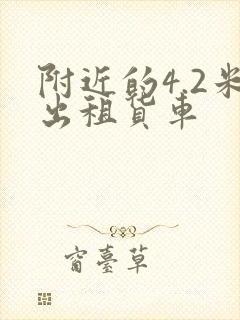 附近的4.2米
出租货车
窗臺草